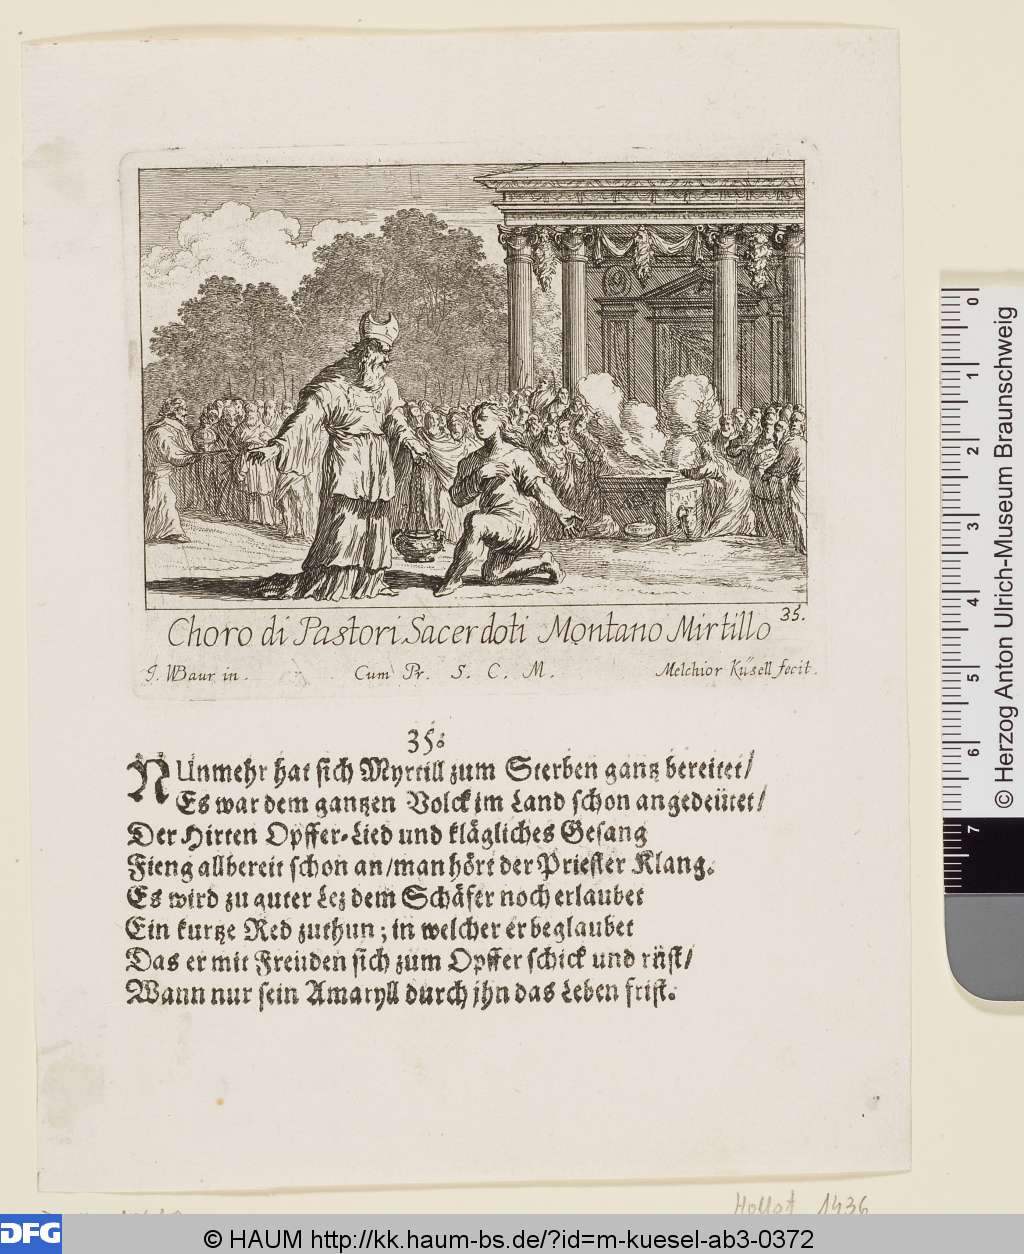 35.
Choro di Pastori Sacerdoti Montano Mirtillo
J. WBaur in. Cum Pr. S. C. M. Melchior Küsell fecit.
35.
NUnmehr hat sich Myrtill zum Sterben gantz bereitet/
Es war dem gantzen Volck im Land schon angedeütet/
Der Hirten Opffer-Lied und klägliches Gesang
Fieng allbereit schon an/man hört der Priester Klang.
Es wird zu guter Lez dem Schäfer noch erlaubet
Ein kurtze Red zuthun; in welcher er beglaubet
Das er mit Freüden sich zum Opffer schick und rüst/
Wann nur sein Amaryll durch jhn das Leben frist.
Hollst 1436
0 1 2 3 4 5 6 7
© Herzog Anton Ulrich-Museum Braunschweig
DFG
© HAUM http://kk.haum-bs.de/?id=m-kuesel-ab3-0372